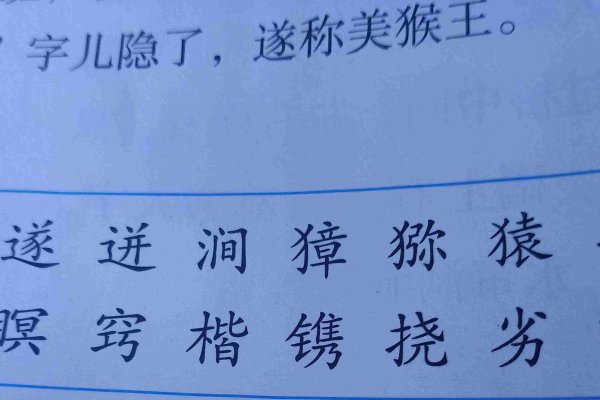 字儿隐了，遂称美猴王。
遂 迸 涧 獐 猕 猿
瞑 窍 楷 镌 挠 劣